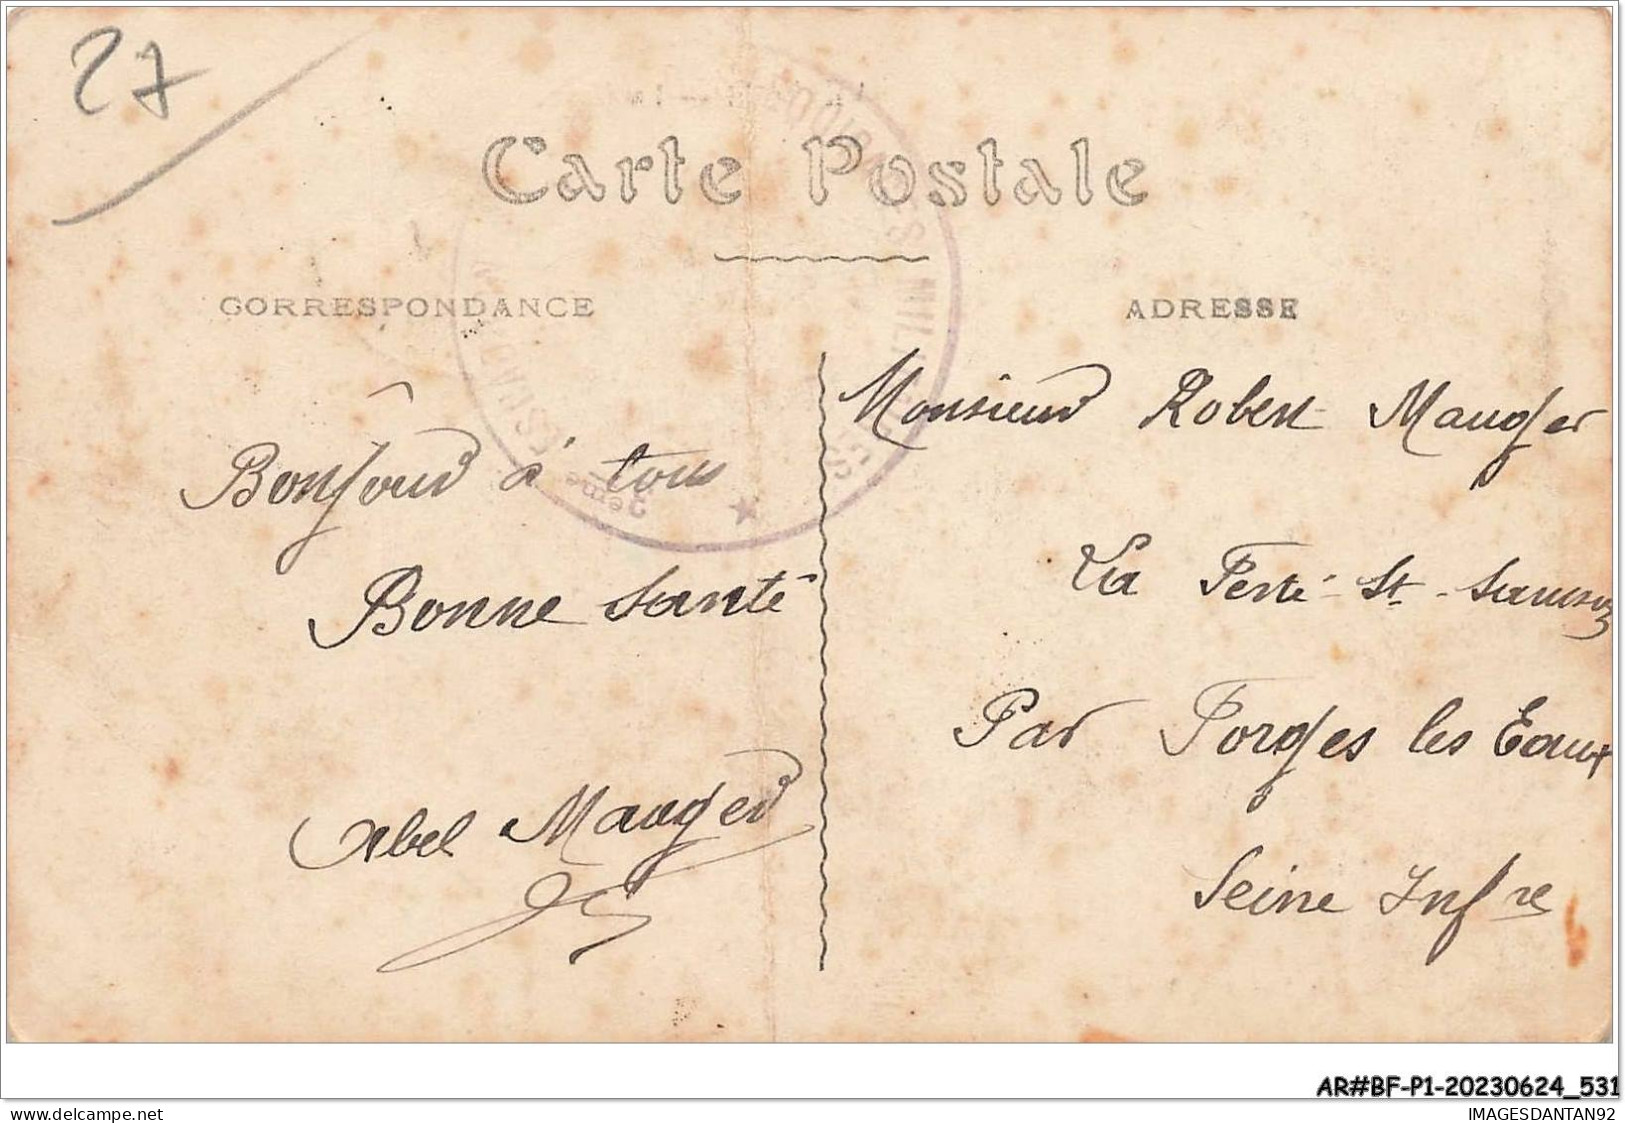 27
Carte Postale
CORRESPONDANCE
ADRESSE
Bonjour à tous
Bonne santé
Abel Mauger
Monsieur Robert Mauger
La Ferté-St-Samson
Par Forges les Eaux
Seine Infre
2ème
AR#BF-P1-20230624_531
www.delcampe.net
IMAGESDANTAN92